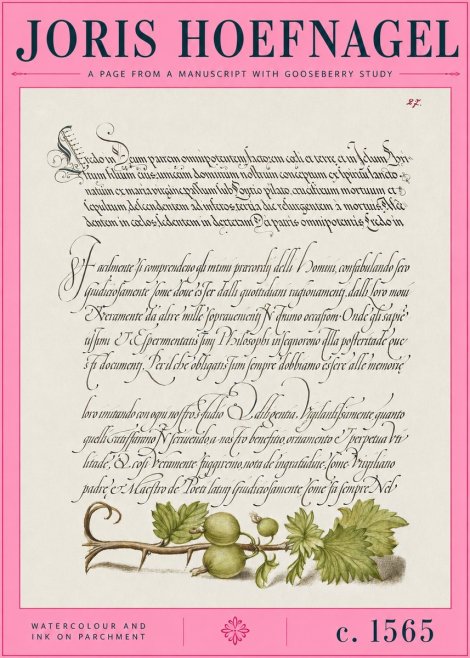 JORIS HOEFNAGEL
A PAGE FROM A MANUSCRIPT WITH GOOSEBERRY STUDY
27.
Credo in Deum patrem omnipotentem factorem cœli et terre et in Jesum Chri-
stum filium eius unicum dominum nostrum conceptum ex spiritu sancto
natum ex maria virgine passum sub Pontio pilato, crucifixum mortuum et
sepultum, descendentem ad inferos, tertia die resurgentem à mortuis
dentem in cœlos sedentem in dexteram Dei patris omnipotentis Credo in
Facilmente si comprendeno gli intimi precordij delli Homini, confabulando seco
Giudiciosamente Come doue esser dalli quottidiani ragionamenti, dalli loro moui
Veramente da altre mille soprauenienti In ogniuno occasion. Onde gli sapie
tissimi Et Esperimentatissimi Philosophi insegnorono alla posteritade que-
sti documenti, Per il che obligatissimi sempre dobbiamo essere alle memorie
loro imitando con ogni nostro studio Et all'hentia, Vigilantissimamente quanto
quelli scrissero a nostro beneficio, ornamento Et perpetua Vti
litade, & cosi Veramente fuggiremo, nota de ingratitudine, Come Virgiliano
padre, e Maestro de Poeti latini Giudiciosamente Come fa sempre. Nel
WATERCOLOUR AND
INK ON PARCHMENT
c. 1565